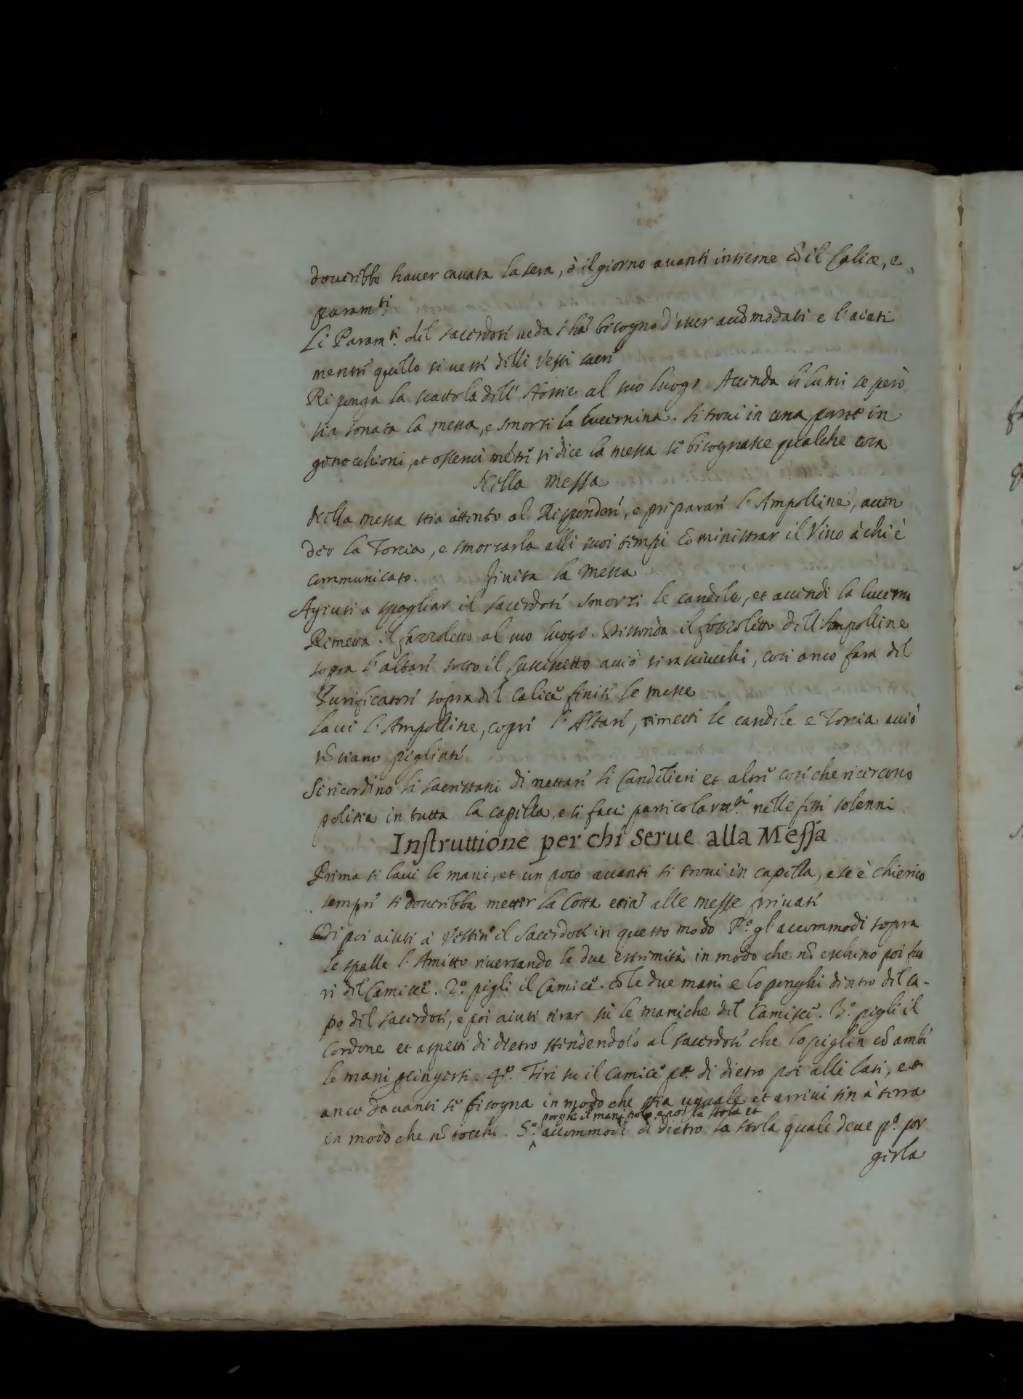 dovrebbe haver cavata la sera, ò il giorno avanti insieme cõ il Calice, e
paramti
Li Paramti del sacerdote veda s'hã bisogno d'esser accõmodati e l'aiuti
mentre quello si veste delli Vesti sacre
Riponga la scattola dell'Hostie al suo luogo. Accenda li lumi se però
sia sonata la messa, e smorzi la lucernina. Si trovi in una parte in
genocchioni, et osservi mẽtre si dice la messa se bisognasse qualche cosa
Nella Messa
Nella messa stia attento al Rispondere, e preparare l'Ampolline, accen
der la Torcia, e smorzarla alli suoi tempi Et ministrar il Vino à chi è
communicato. Finita la Messa
Agiuti a spogliar il sacerdote smorzi le candele, et accendi la lucerna
Rimetta il fazzoletto al suo luogo. Distenda il fazzoletto dell'Ampolline
sopra l'altare sotto il cuscinetto acciò si rasciucchi, così anco farà del
Purificatore sopra del Calice finite le messe
Lavi l'Ampolline, copri l'Altare, rimetti le candele e Torcia acciò
nõ siano pigliate
Si ricordino li sacristani di nettare li Candelieri et altre cose che ricercono
politia in tutta la capella, e si facci particolarmte nelle feste solenni
Instruttione per chi serve alla Messa
Prima si lavi le mani, et un poco avanti si trovi in capella, e se è chierico
sempre si dovrebbe metter la Cotta etiã alle messe private
Di poi aiuti à Vestire il Sacerdote in questo modo Po. gl'accommodi sopra
le spalle l'Amitto riversando le due estremità in modo che nõ eschino poi fuo
ri del Camice. 2o. pigli il Camice cõ le due mani e lo ponghi dentro del ca-
po del sacerdote, e poi aiuti tirar sù le maniche del Camisce. 3o. pigli il
Cordone et aspetti di dietro stendendolo al sacerdote che lo piglia cõ ambe
le mani p cingersi. 4o. Tiri su il Camice pa di dietro poi alli lati, et
anco davanti se bisogna in modo che stia uguale et arrivi sin à terra
porghi il manipolo e poi la stola et
in modo che nõ tocchi. 5o. accommodi di dietro la stola quale deve pa. por
girla